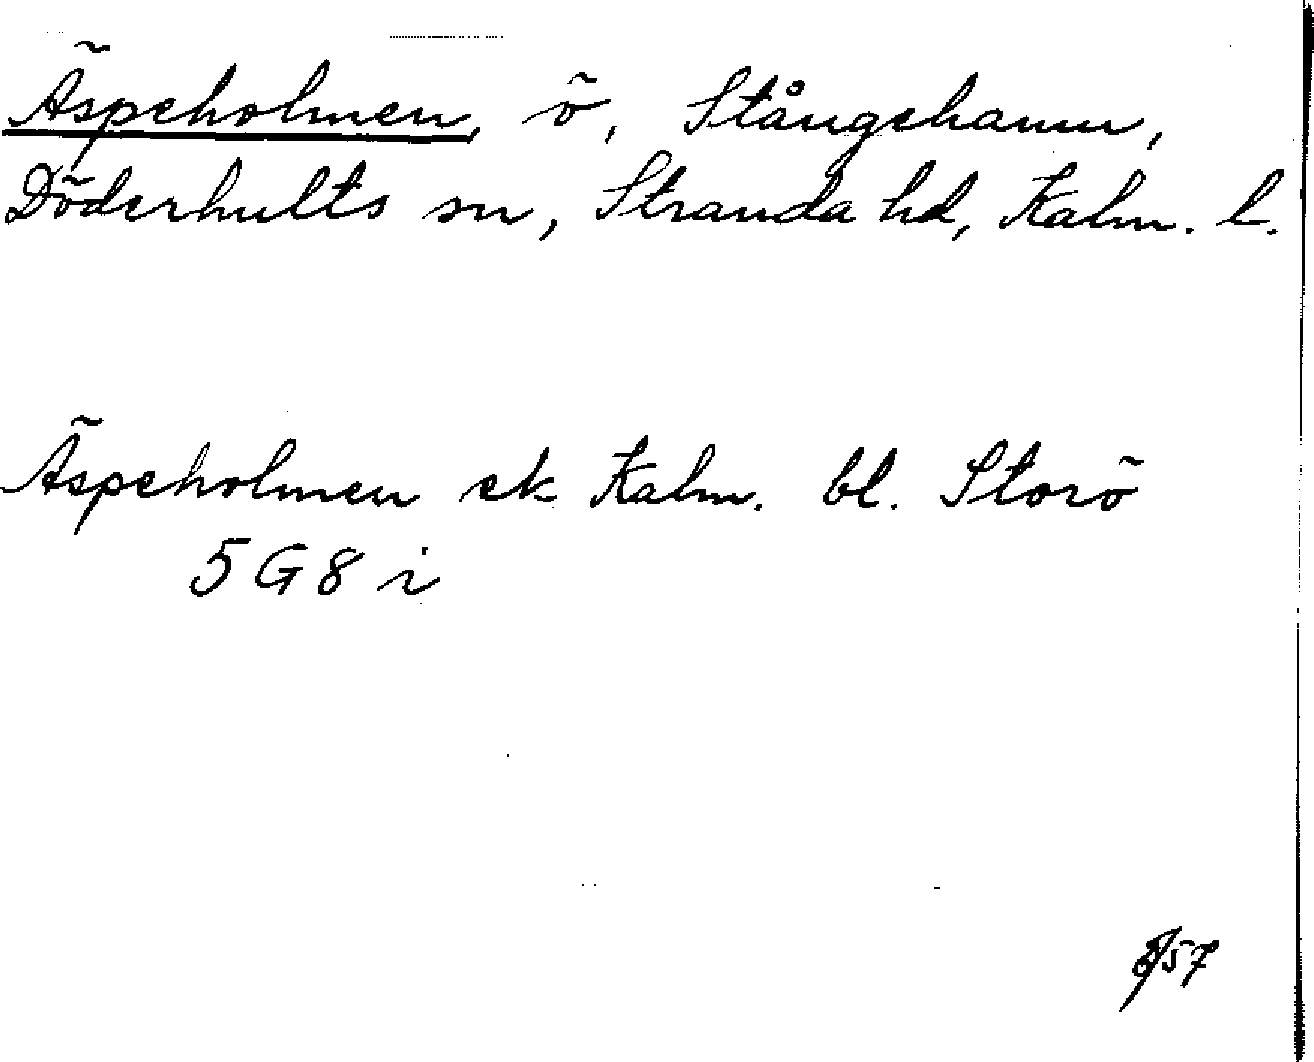 Äspeholmen, ö, Stångehamn,
Döderhults sn, Stranda hd, Kalm. l.
Äspeholmen ek Kalm. bl. Storö
5G8i